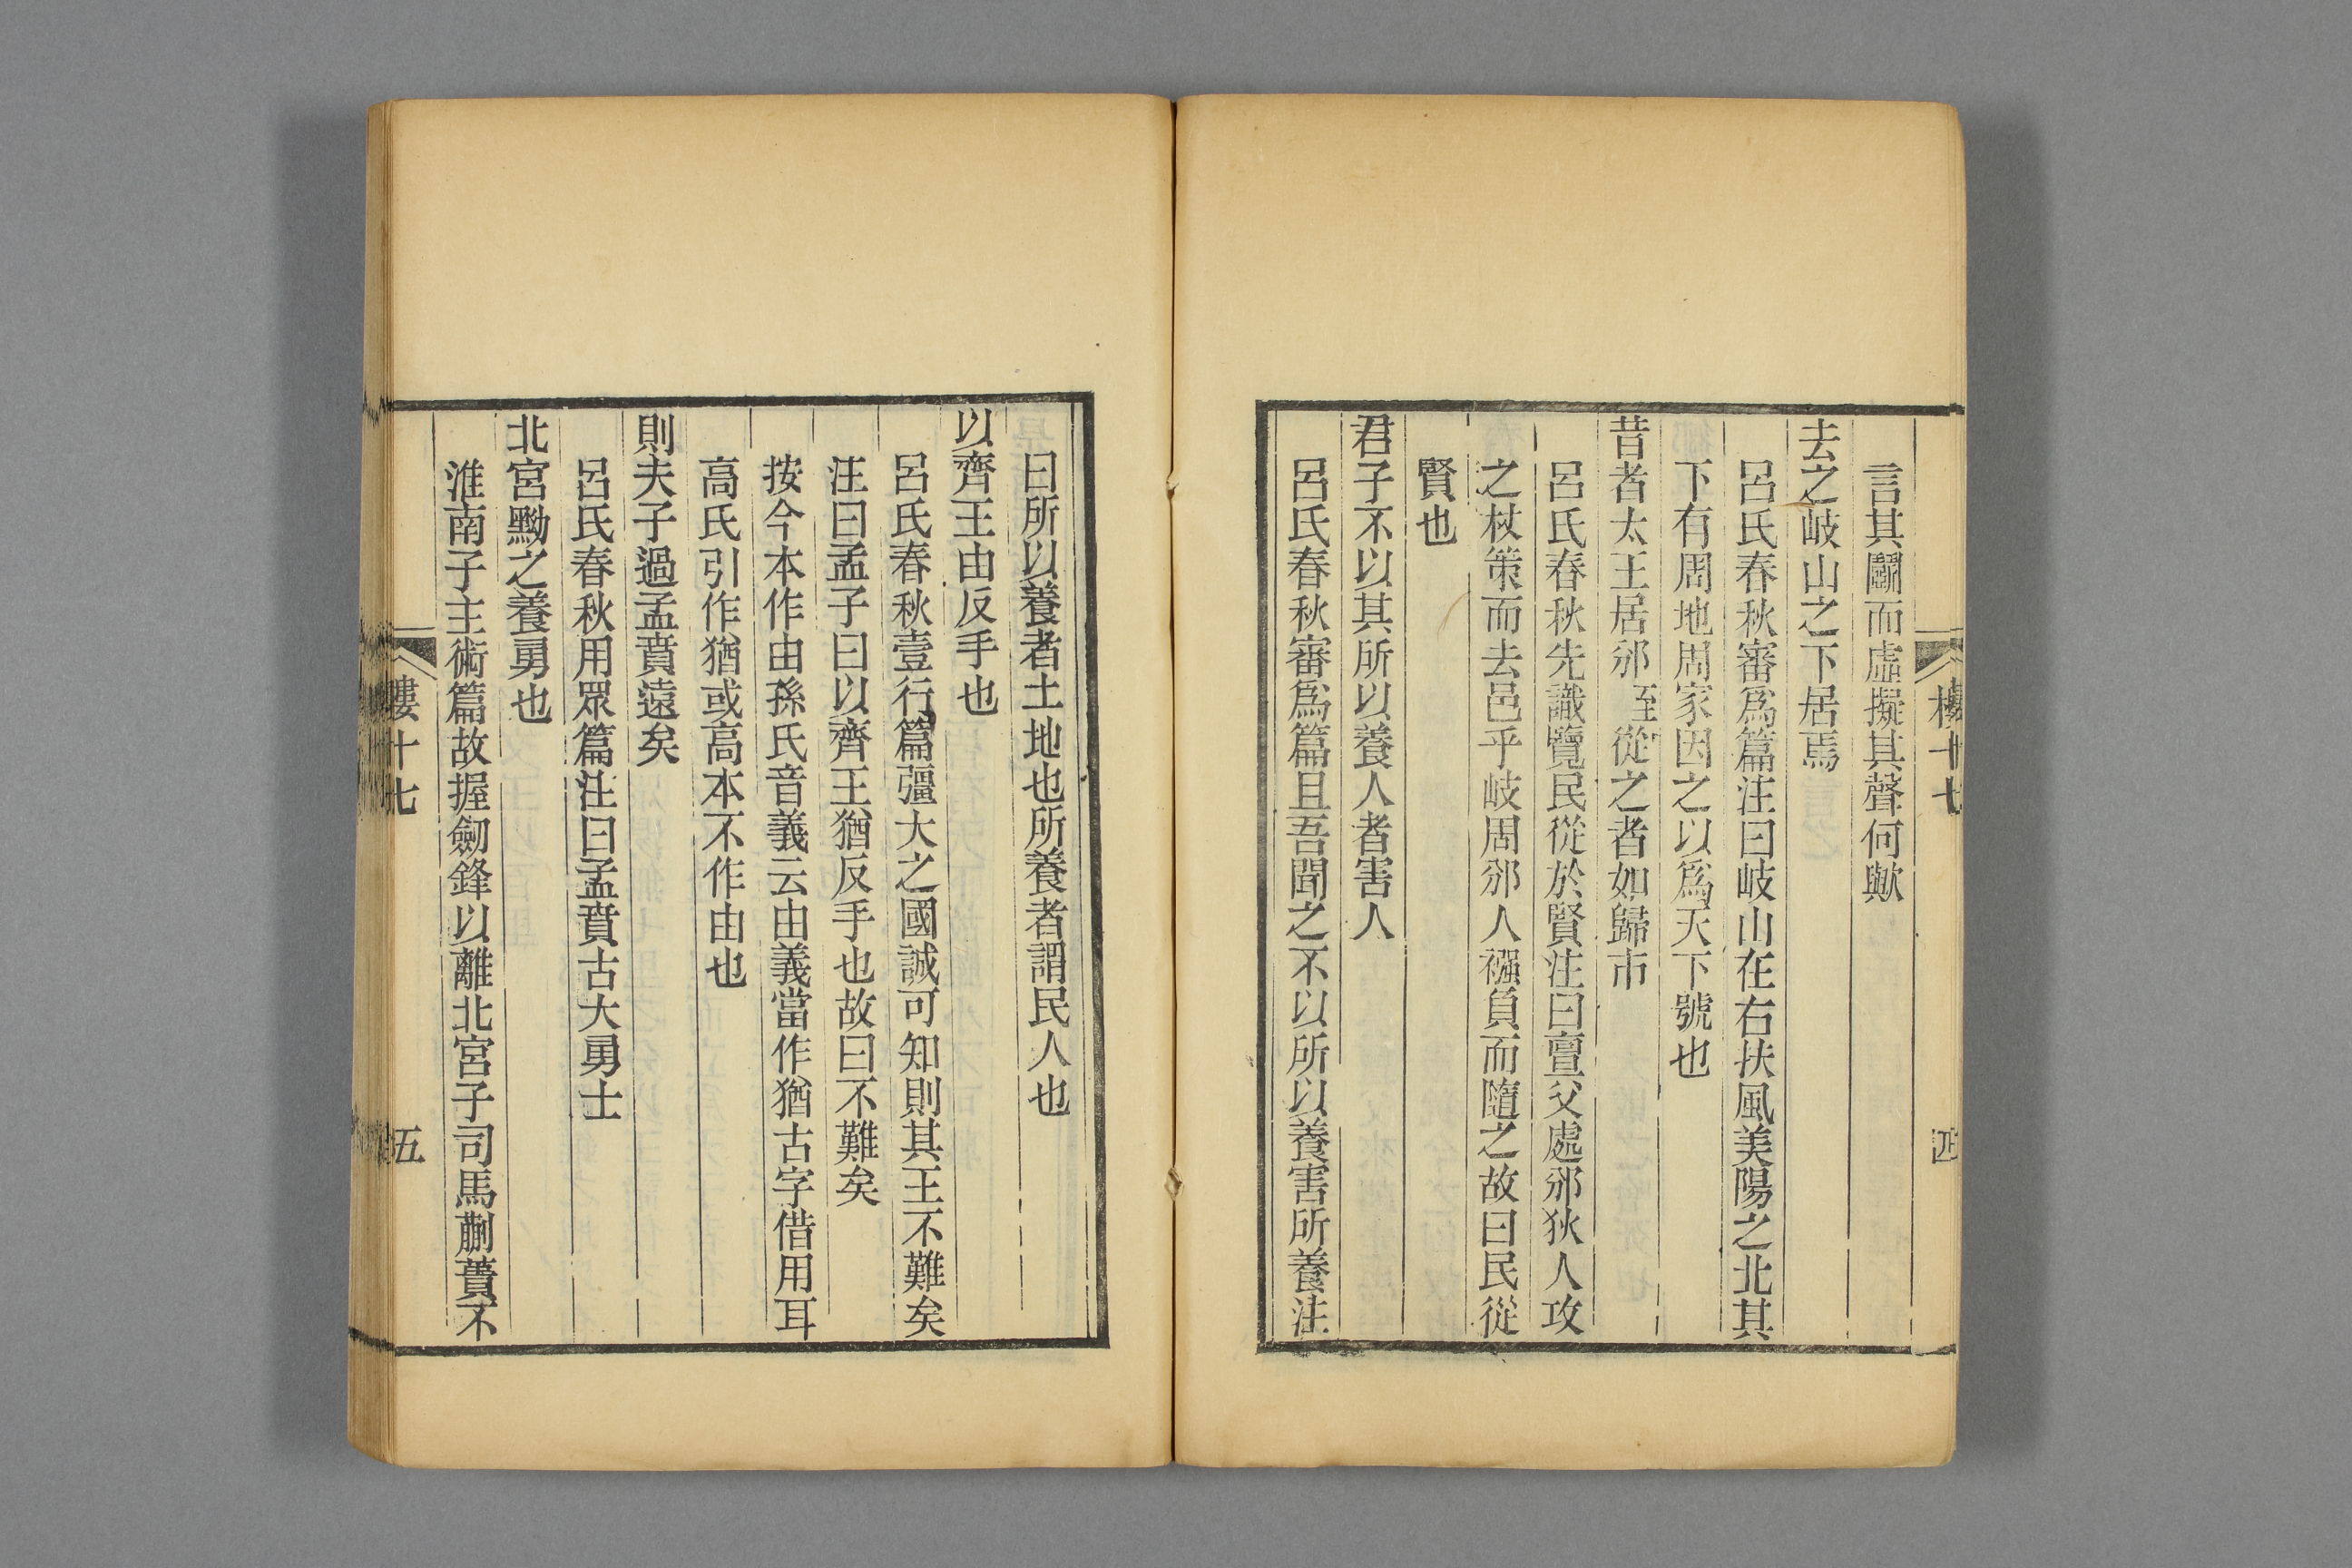 言其鬭而虛擬其聲何歟
去之岐山之下居焉
呂氏春秋審爲篇注曰岐山在右扶風美陽之北其
下有周地周家因之以爲天下號也
昔者太王居邠至從之者如歸市
呂氏春秋先識覽民從於賢注曰亶父處邠狄人攻
之杖策而去邑乎岐周邠人襁負而隨之故曰民從
賢也
君子不以其所以養人者害人
呂氏春秋審爲篇且吾聞之不以所以養害所養注
樓十七
四
曰所以養者土地也所養者謂民人也
以齊王由反手也
呂氏春秋壹行篇彊大之國誠可知則其王不難矣
注曰孟子曰以齊王猶反手也故曰不難矣
按今本作由孫氏音義云由義當作猶古字借用耳
高氏引作猶或高本不作由也
則夫子過孟賁遠矣
呂氏春秋用眾篇注曰孟賁古大勇士
北宮黝之養勇也
淮南子主術篇故握劒鋒以離北宮子司馬蒯蕢不
樓十七
五